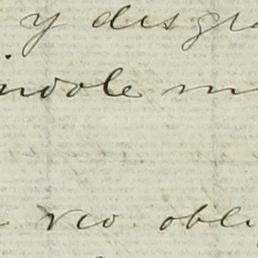 y des gra
indole m
reo obli